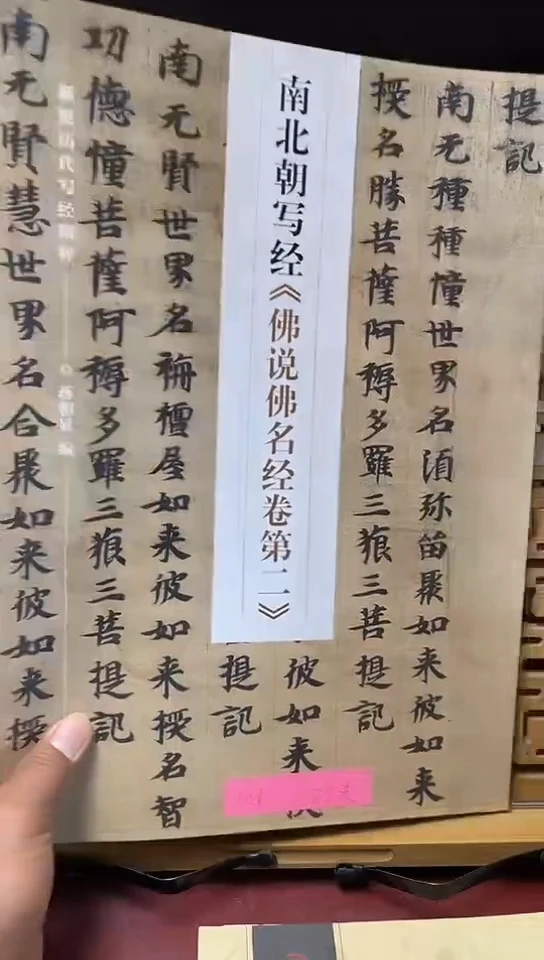 提記
南无種種憧世界名湏弥苗聚如来彼如来
授名勝菩薩阿耨多羅三狼三菩提記
南北朝写经《佛说佛名经卷第二》
彼如来
提記
南无賢世界名栴檀屋如来彼如来授名智
功德憧菩薩阿耨多羅三狼三菩提記
南无賢慧世界名合聚如来彼如来授